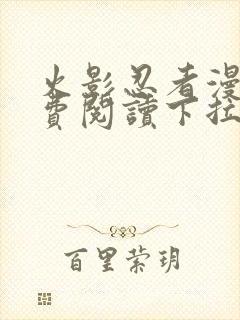 火影忍者漫
費閱讀下拉
百里萦玥